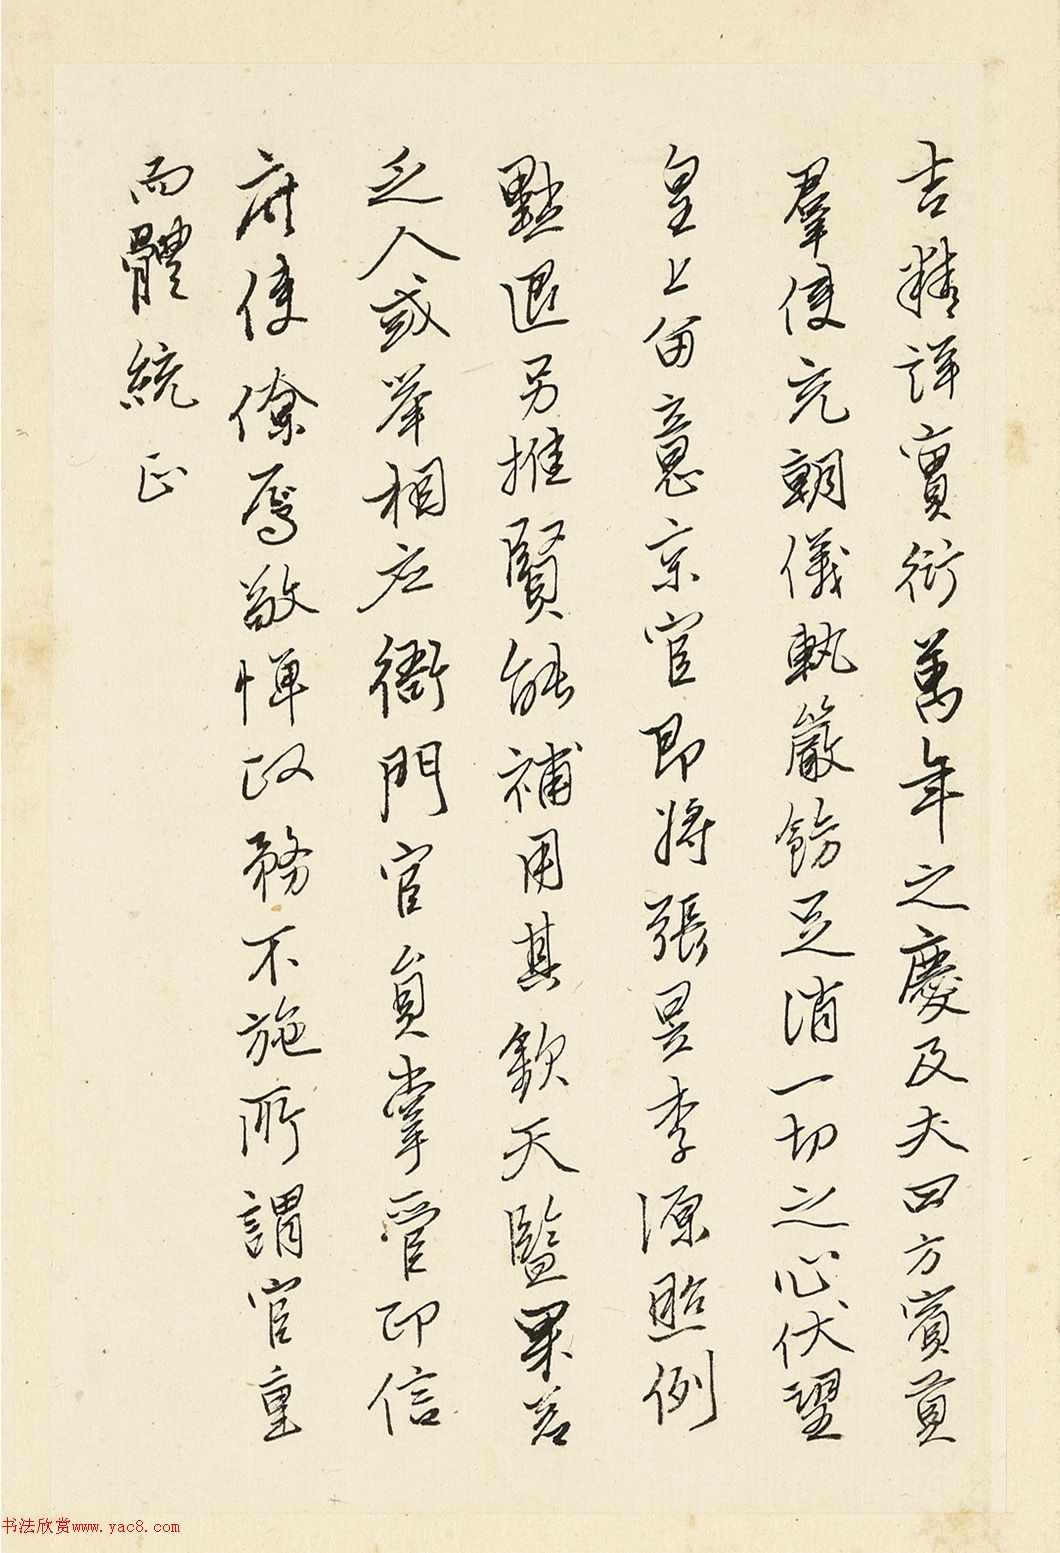 吉精詳實衍萬年之慶及夫四方賓貢
羣使充朝儀執嚴飭足消一切之心伏望
皇上留意京官即將張昱李源照例
黜退另推賢能補用其欽天監果若
乏人或举相应衙門官員掌管印信
庶使僚属敬憚政務不施所謂官重
而體統正
书法欣赏www.yac8.com